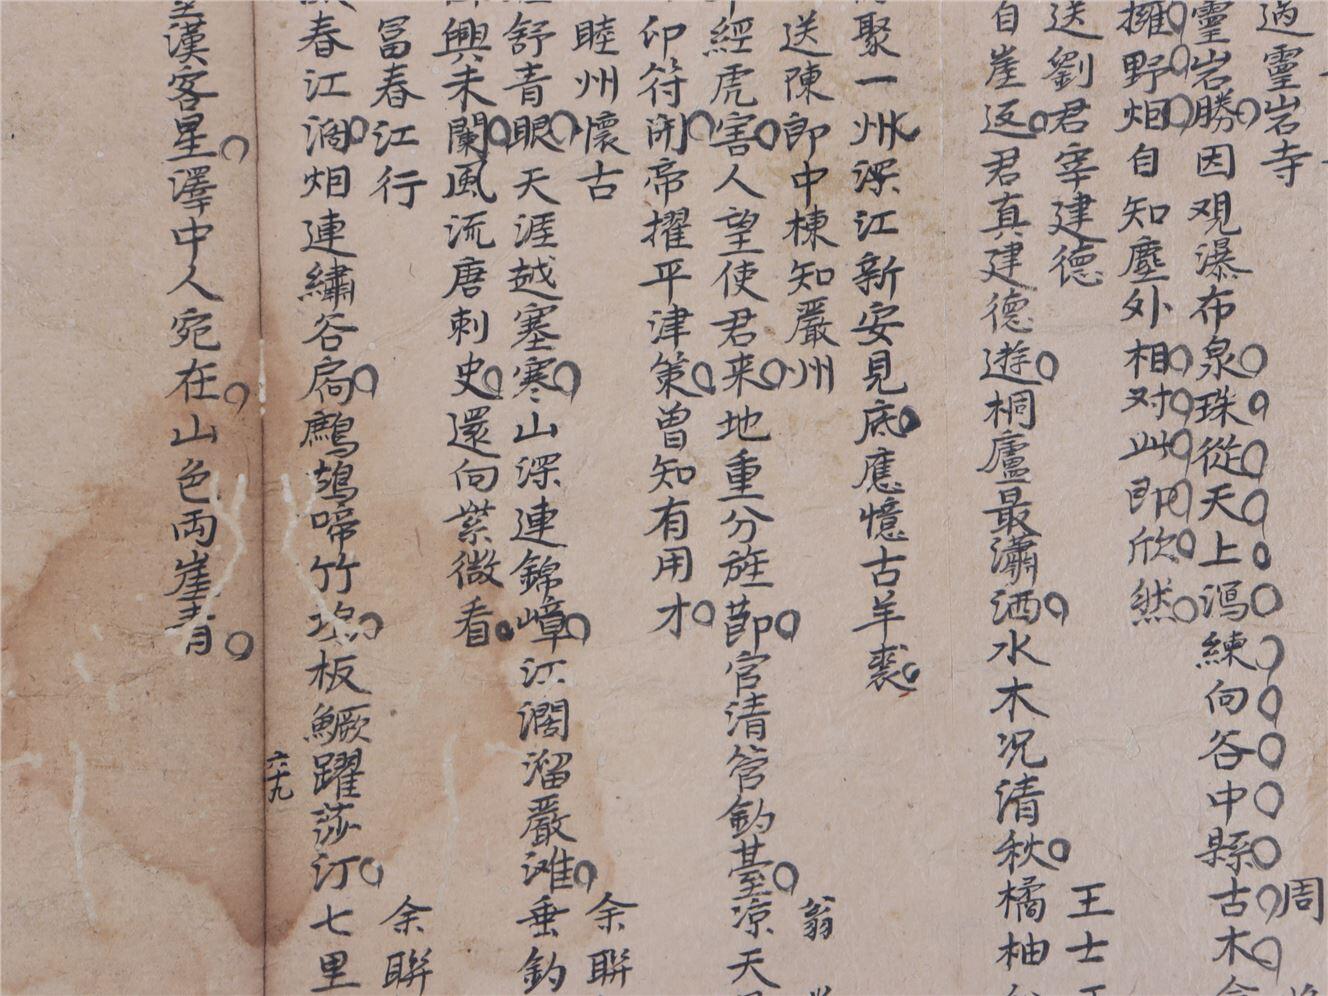 過靈岩寺
周
靈岩勝因观瀑布泉珠從天上瀉練向谷中縣古木
擁野烟自知塵外相对此即欣然
送劉君宰建德
王士
自崖返君真建德遊桐廬最瀟洒水木况清秋橘柚
聚一州深江新安見底應憶古羊裘
送陳郎中棟知嚴州
翁
經虎害人望使君来地重分旌節官清管釣臺凉天
印符開帝擢平津策曾知有用才
睦州懷古
余聯
舒青眼天涯越塞寒山深連錦嶂江濶溜嚴滩垂釣
興未闌風流唐刺史還向紫微看
富春江行
余聯
春江涸烟連繡谷扃鷓鴣啼竹塢板鱖躍莎汀七里
六十九
漢客星澤中人宛在山色两崖青